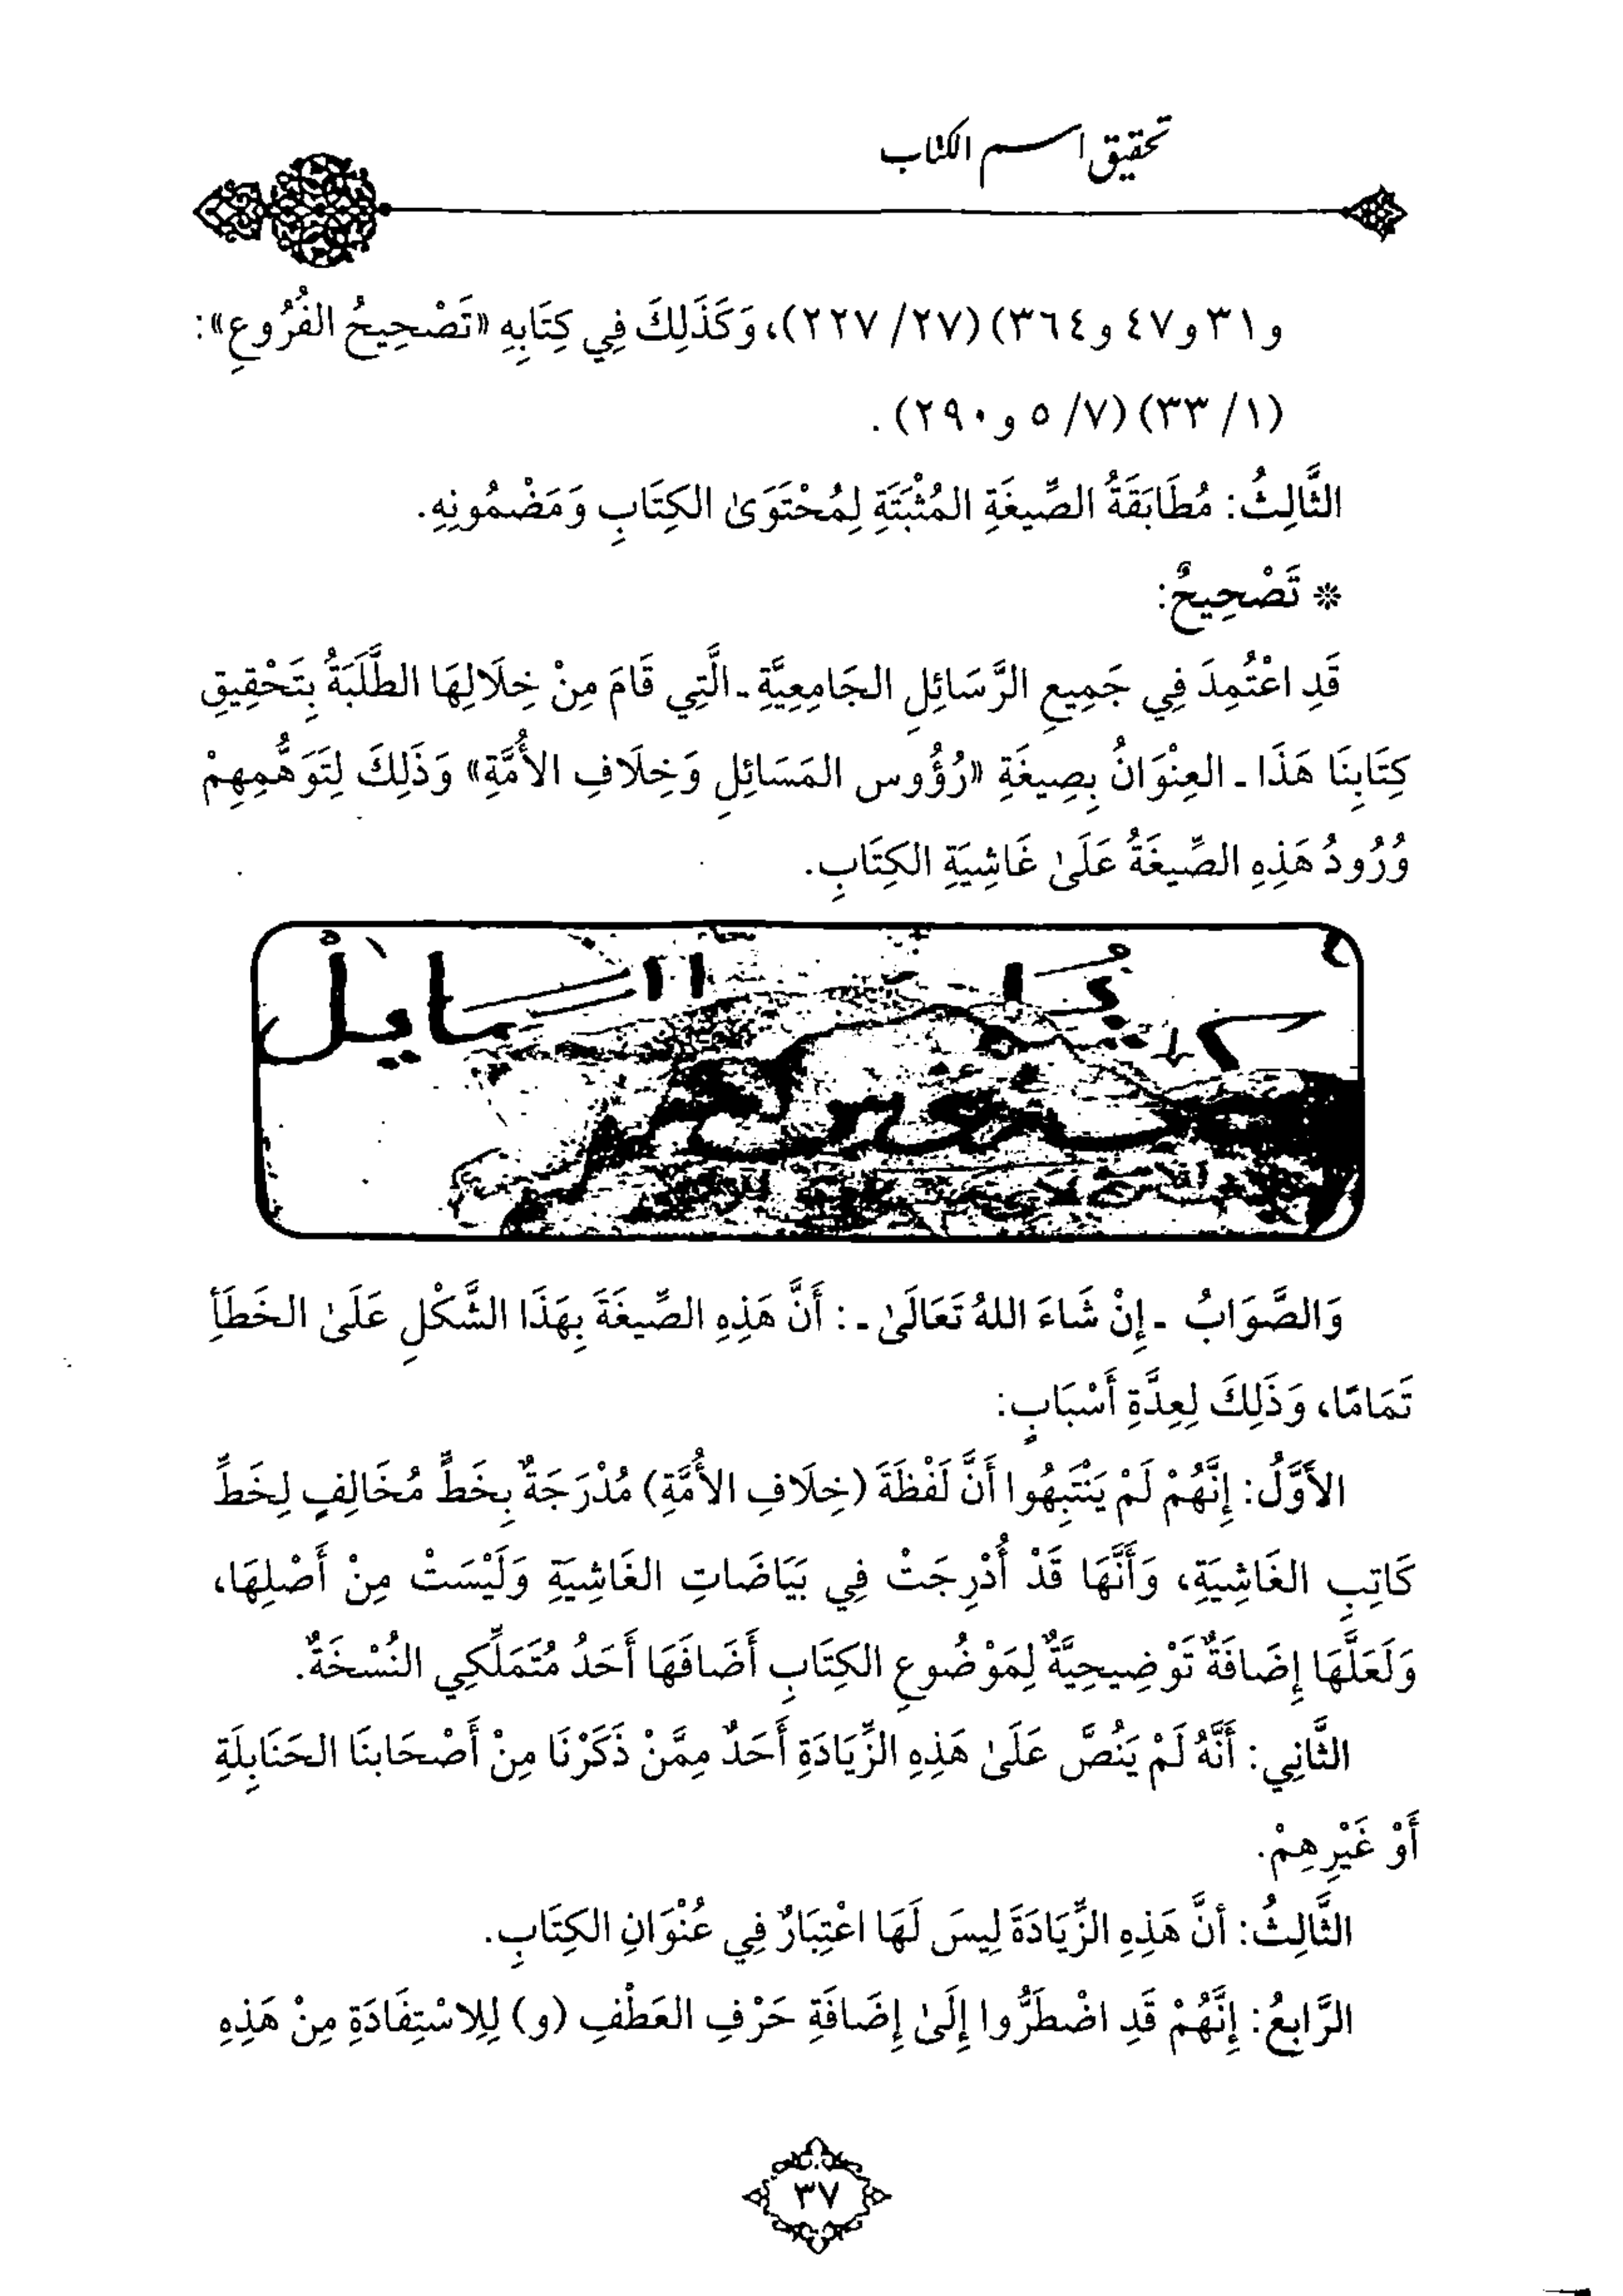 تحقيق اسم الكتاب
و٣١ و٤٧ و٣٦٤) (٢٧/ ٢٢٧)، وَكَذَلِكَ فِي كِتَابِهِ «تَصْحِيحُ الفُرُوعِ»:
(١/ ٣٣) (٧/ ٥ و٢٩٠).
الثَّالِثُ: مُطَابَقَةُ الصِّيغَةِ المُثْبَتَةِ لِمُحْتَوَىٰ الكِتَابِ وَمَضْمُونِهِ.
* تَصْحِيحٌ:
قَدِ اعْتُمِدَ فِي جَمِيعِ الرَّسَائِلِ الجَامِعِيَّةِ ـ الَّتِي قَامَ مِنْ خِلَالِهَا الطَّلَبَةُ بِتَحْقِيقِ
كِتَابِنَا هَذَا ـ العِنْوَانُ بِصِيغَةِ «رُؤُوس المَسَائِلِ وَخِلَافِ الأُمَّةِ» وَذَلِكَ لِتَوَهُّمِهِمْ
وُرُودُ هَذِهِ الصِّيغَةُ عَلَىٰ غَاشِيَةِ الكِتَابِ.
المسايل
وَالصَّوَابُ ـ إِنْ شَاءَ اللهُ تَعَالَىٰ ـ: أَنَّ هَذِهِ الصِّيغَةَ بِهَذَا الشَّكْلِ عَلَىٰ الخَطَأِ
تَمَامًا، وَذَلِكَ لِعِدَّةِ أَسْبَابٍ:
الأَوَّلُ: إِنَّهُمْ لَمْ يَنْتَبِهُوا أَنَّ لَفْظَةَ (خِلَافِ الأُمَّةِ) مُدْرَجَةٌ بِخَطٍّ مُخَالِفٍ لِخَطِّ
كَاتِبِ الغَاشِيَةِ، وَأَنَّهَا قَدْ أُدْرِجَتْ فِي بَيَاضَاتِ الغَاشِيَةِ وَلَيْسَتْ مِنْ أَصْلِهَا،
وَلَعَلَّهَا إِضَافَةٌ تَوْضِيحِيَّةٌ لِمَوْضُوعِ الكِتَابِ أَضَافَهَا أَحَدُ مُتَمَلِّكِي النُسْخَةٌ.
الثَّانِي: أَنَّهُ لَمْ يَنُصَّ عَلَىٰ هَذِهِ الزِّيَادَةِ أَحَدٌ مِمَّنْ ذَكَرْنَا مِنْ أَصْحَابنَا الحَنَابِلَةِ
أَوْ غَيْرِهِمْ.
الثَّالِثُ: أنَّ هَذِهِ الزِّيَادَةَ لِيسَ لَهَا اعْتِبَارٌ فِي عُنْوَانِ الكِتَابِ.
الرَّابعُ: إِنَّهُمْ قَدِ اضْطَرُّوا إِلَىٰ إِضَافَةِ حَرْفِ العَطْفِ (و) لِلِاسْتِفَادَةِ مِنْ هَذِهِ
٣٧